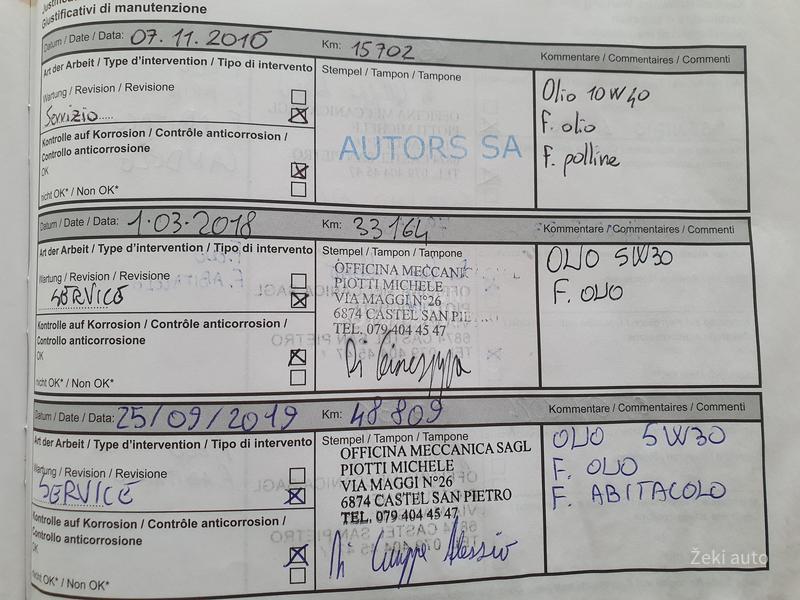 Giustificativi di manutenzione
Datum / Date / Data: 07.11.2016 Km: 15702 Kommentare / Commentaires / Commenti
Art der Arbeit / Type d'intervention / Tipo di intervento Stempel / Tampon / Tampone
Wartung / Revision / Revisione
Servizio
Kontrolle auf Korrosion / Contrôle anticorrosion /
Controllo anticorrosione
OK
nicht OK* / Non OK*
AUTORS SA
Olio 10W40
F. olio
F. polline
Datum / Date / Data: 1.03.2018 Km: 33164 Kommentare / Commentaires / Commenti
Art der Arbeit / Type d'intervention / Tipo di intervento Stempel / Tampon / Tampone
Wartung / Revision / Revisione
SERVICE
Kontrolle auf Korrosion / Contrôle anticorrosion /
Controllo anticorrosione
OK
nicht OK* / Non OK*
OFFICINA MECCANIC
PIOTTI MICHELE
VIA MAGGI N°26
6874 CASTEL SAN PIE
TEL. 079 404 45 47
OLIO 5W30
F. OLIO
Datum / Date / Data: 25/09/2019 Km: 48809 Kommentare / Commentaires / Commenti
Art der Arbeit / Type d'intervention / Tipo di intervento Stempel / Tampon / Tampone
Wartung / Revision / Revisione
SERVICE
Kontrolle auf Korrosion / Contrôle anticorrosion /
Controllo anticorrosione
OK
nicht OK* / Non OK*
OFFICINA MECCANICA SAGL
PIOTTI MICHELE
VIA MAGGI N°26
6874 CASTEL SAN PIETRO
TEL. 079 404 45 47
OLIO 5W30
F. OLIO
F. ABITACOLO
Žeki auto